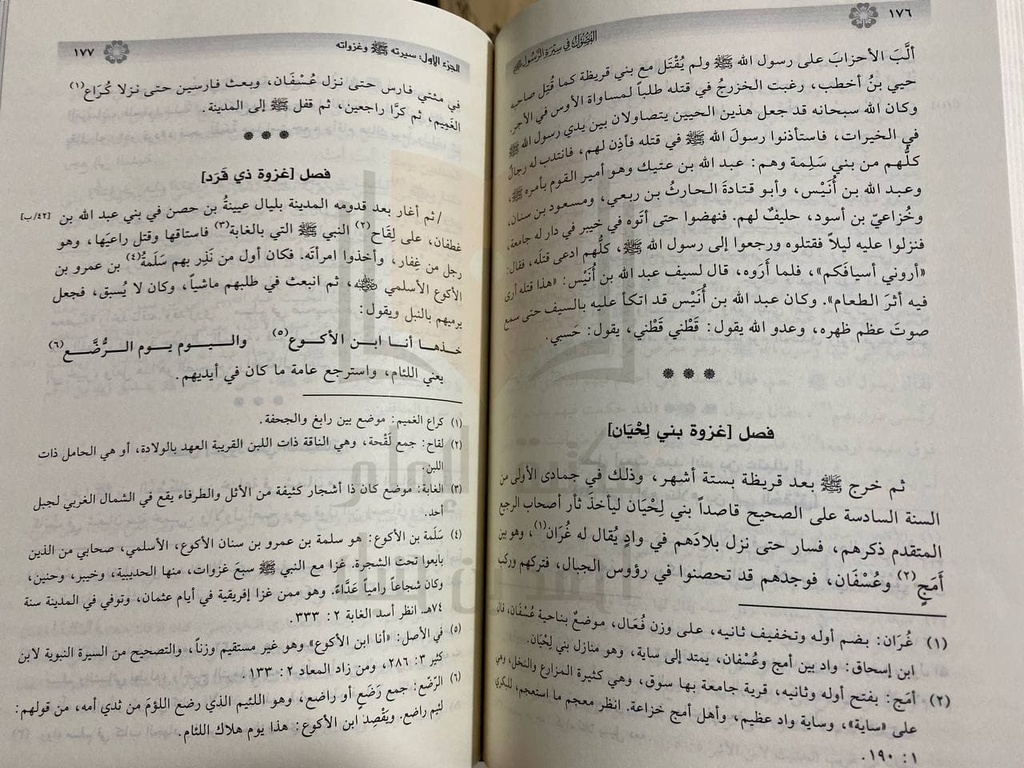 ١٧٦
الفصول في سيرة الرسول ﷺ
ألَّبَ الأحزابَ على رسول الله ﷺ ولم يُقْتَل مع بني قريظة كما قُتِل صاحبه
حيي بنُ أخطب، رغبت الخزرجُ في قتله طلباً لمساواة الأوس في الأجر.
وكان الله سبحانه قد جعل هذين الحيين يتصاولان بين يدي رسول الله ﷺ
في الخيرات، فاستأذنوا رسولَ الله ﷺ في قتله فأذِن لهم، فانتدب له رجالٌ
كلُّهم من بني سَلِمة وهم: عبد الله بن عتيك وهو أمير القوم بأمره ﷺ،
وعبد الله بن أُنَيْس، وأبو قتادةَ الحارثُ بن ربعي، ومسعود بن سنان،
وخُزاعيّ بن أسود، حليفٌ لهم. فنهضوا حتى أتَوه في خيبر في دار له جامعة،
فنزلوا عليه ليلاً فقتلوه ورجعوا إلى رسول الله ﷺ، كلُّهم ادعى قتله، فقال:
«أروني أسيافكم»، فلما أرَوه، قال لسيف عبد الله بن أُنَيْس: «هذا قتله أرى
فيه أثرَ الطعام». وكان عبد الله بن أُنَيْس قد اتكأ عليه بالسيف حتى سمع
صوتَ عظم ظهره، وعدو الله يقول: قَطْني قَطْني، يقول: حَسبي.
* * *
فصل [غزوة بني لِحْيَان]
ثم خرج ﷺ بعد قريظة بستة أشهر، وذلك في جمادى الأولى من
السنة السادسة على الصحيح قاصداً بني لِحْيَان ليأخذ ثأر أصحاب الرجيع
المتقدم ذكرهم، فسار حتى نزل بلادَهم في وادٍ يُقال له غُرَان(١)، وهو بين
أَمَجٍ(٢) وعُسْفَان، فوجدهم قد تحصنوا في رؤوس الجبال، فتركهم وركب
(١) غُرَان: بضم أوله وتخفيف ثانيه، على وزن فُعَال، موضعٌ بناحية عُسْفَان، قال
ابن إسحاق: واد بين أمج وعُسْفان، يمتد إلى ساية، وهو منازل بني لِحْيَان.
(٢) أمَج: بفتح أوله وثانيه، قرية جامعة بها سوق، وهي كثيرة المزارع والنخل، وهي
على «ساية»، وساية واد عظيم، وأهل أمج خزاعة. انظر معجم ما استعجم، للبكري
١ : ١٩٠.
الجزء الأول: سيرته ﷺ وغزواته
١٧٧
في مئتي فارس حتى نزل عُسْفَان، وبعث فارسين حتى نزلا كُرَاع(١)
الغَمِيم، ثم كرَّا راجعين، ثم قفل ﷺ إلى المدينة.
* * *
فصل [غزوة ذي قَرَد]
/ ثم أغار بعد قدومه المدينة بليال عيينةُ بن حصن في بني عبد الله بن [٤٢/ب]
غطفان، على لِقَاح(٢) النبي ﷺ التي بالغابة(٣) فاستاقها وقتل راعيَها، وهو
رجل من غِفار، وأخذوا امرأتَه. فكان أول من نَذِر بهم سَلَمةُ(٤) بن عمرو بن
الأكوع الأسلمي رضي الله عنه، ثم انبعث في طلبهم ماشياً، وكان لا يُسبق، فجعل
يرميهم بالنبل ويقول:
خـذهـا أنـا ابـن الأكـوع(٥) والـيـوم يـوم الـرُّضَّـع(٦)
يعني اللئام، واسترجع عامة ما كان في أيديهم.
(١) كراع الغميم: موضع بين رابغ والجحفة.
(٢) لقاح: جمع لَقْحة، وهي الناقة ذات اللبن القريبة العهد بالولادة، أو هي الحامل ذات
اللبن.
(٣) الغابة: موضع كان ذا أشجار كثيفة من الأثل والطرفاء يقع في الشمال الغربي لجبل
أحد.
(٤) سَلَمة بن الأكوع: هو سلمة بن عمرو بن سنان الأكوع، الأسلمي، صحابي من الذين
بايعوا تحت الشجرة. غزا مع النبي ﷺ سبعَ غزوات، منها الحديبية، وخيبر، وحنين،
وكان شجاعاً رامياً عَدَّاءً. وهو ممن غزا إفريقية في أيام عثمان، وتوفي في المدينة سنة
٧٤هـ. انظر أسد الغابة ٢ : ٣٣٣.
(٥) في الأصل: «أنا ابن الأكوع» وهو غير مستقيم وزناً، والتصحيح من السيرة النبوية لابن
كثير ٣ : ٢٨٦، ومن زاد المعاد ٢ : ١٣٣.
(٦) الرّضّع: جمع رَضَع أو راضع، وهو اللئيم الذي رضع اللؤمَ من ثدي أمه، من قولهم:
لئيم راضع. ويَقْصِد ابن الأكوع: هذا يوم هلاك اللئام.